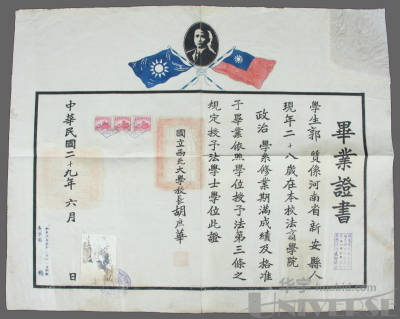 畢業證書
學生郭質係河南省新安縣人
現年二十八歲在本校法商學院
政治學系修業期滿成績及格准
予畢業依照學位授予法第三條之
規定授予法學士學位此證
國立西北大學校長胡庶華
中華民國二十九年六月 日
UNIVERSE